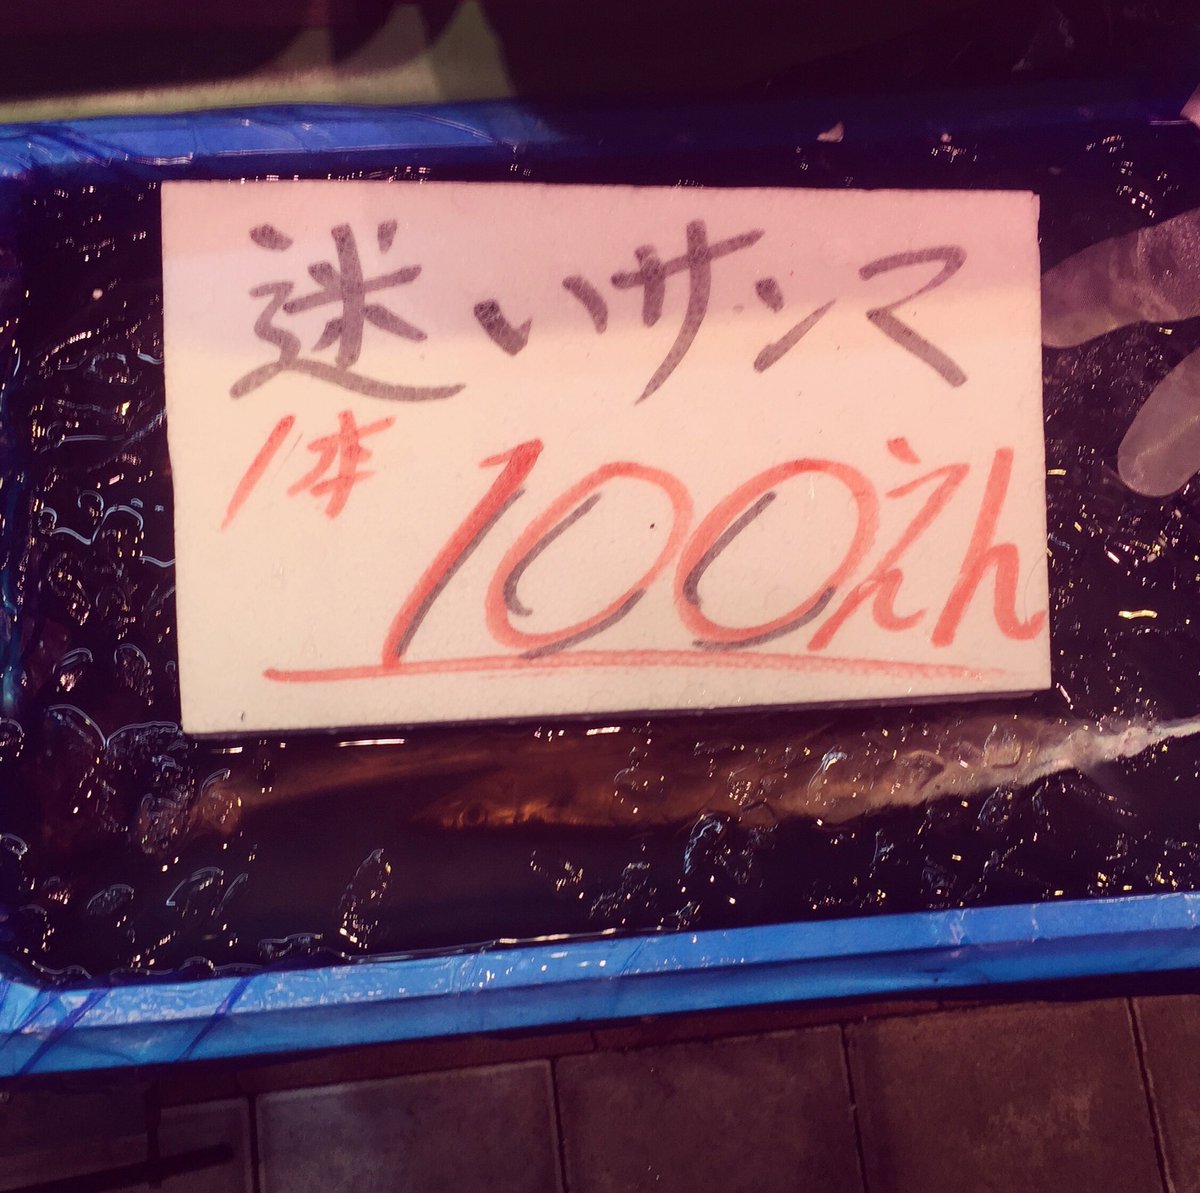 迷いサンマ
1本 100えん